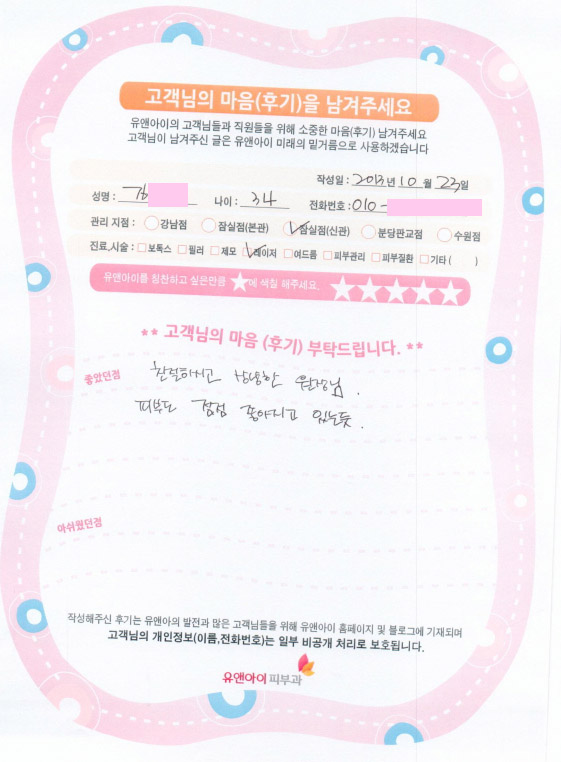 고객님의 마음(후기)을 남겨주세요
유앤아이의 고객님들과 직원들을 위해 소중한 마음(후기) 남겨주세요
고객님이 남겨주신 글은 유앤아이 미래의 밑거름으로 사용하겠습니다
작성일 : 2013년 10월 23일
성명 : 나이 : 34 전화번호 : 010-
관리 지점 : 강남점 잠실점(본관) 잠실점(신관) 분당판교점 수원점
진료,시술 : 보톡스 필러 제모 레이저 여드름 피부관리 피부질환 기타 ( )
유앤아이를 칭찬하고 싶은만큼 ★에 색칠 해주세요. ★★★★★
** 고객님의 마음 (후기) 부탁드립니다. **
좋았던점 친절하시고 상냥한 원장님.
피부도 점점 좋아지고 있는듯.
아쉬웠던점
작성해주신 후기는 유앤아의 발전과 많은 고객님들을 위해 유앤아이 홈페이지 및 블로그에 기재되며
고객님의 개인정보(이름,전화번호)는 일부 비공개 처리로 보호됩니다.
유앤아이 피부과